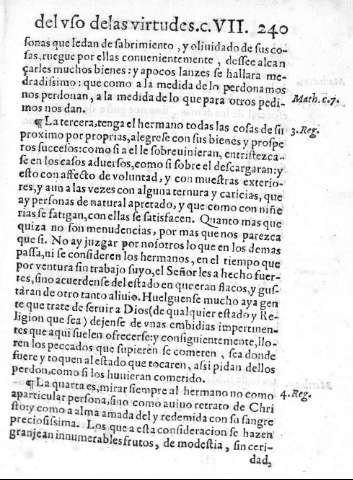 del vso delas virtudes.c.VII. 240
sonas que le dan desabrimiento, y oluidado de sus co-
sas, ruegue por ellas conuenientemente, dessee alcan
çarles muchos bienes: y a pocos lanzes se hallara me-
dradissimo: que como a la medida de lo perdonamos
nos perdonan, a la medida de lo que para otros pedi-
mos nos dan.
Math.c.7.
¶La tercera, tenga el hermano todas las cosas de su
3. Reg.
proximo por proprias, alegrese con sus bienes y prospe
ros sucessos: como si a el le sobreuinieran, entristezca-
se en los casos aduersos, como si sobre el descargaran: y
esto con affecto de voluntad, y con muestras exterio-
res, y aun a las vezes con alguna ternura y caricias, que
ay personas de natural apretado, y que como con niñe
rias se fatigan, con ellas se satisfacen. Quanto mas que
quiza no son menudencias, por mas que nos parezca
que si. No ay juzgar por nosotros lo que en los demas
passa, ni se consideren los hermanos, en el tiempo que
por ventura sin trabajo suyo, el Señor les a hecho fuer-
tes, sino acuerdense del estado en que eran flacos, y gus-
tàran de otro tanto aliuio. Huelguense mucho aya gen
te que trate de seruir a Dios (de qualquier estado y Re-
ligion que sea) dejense de vnas embidias impertinen-
tes que aqui suelen ofrecerse: y consiguientemente, llo-
ren los peccados que supieren se cometen, sea donde
fuere y toquen al estado que tocaren, assi pidan dellos
perdon, como si los huuieran cometido.
¶La quarta es, mirar siempre al hermano no como
4. Reg.
a particular persona, sino como a viuo retrato de Chri
sto: y como a alma amada del y redemida con su sangre
preciosissima. Los que a esta consideracion se hazen
granjean innumerables frutos, de modestia, sinceri-
dad,